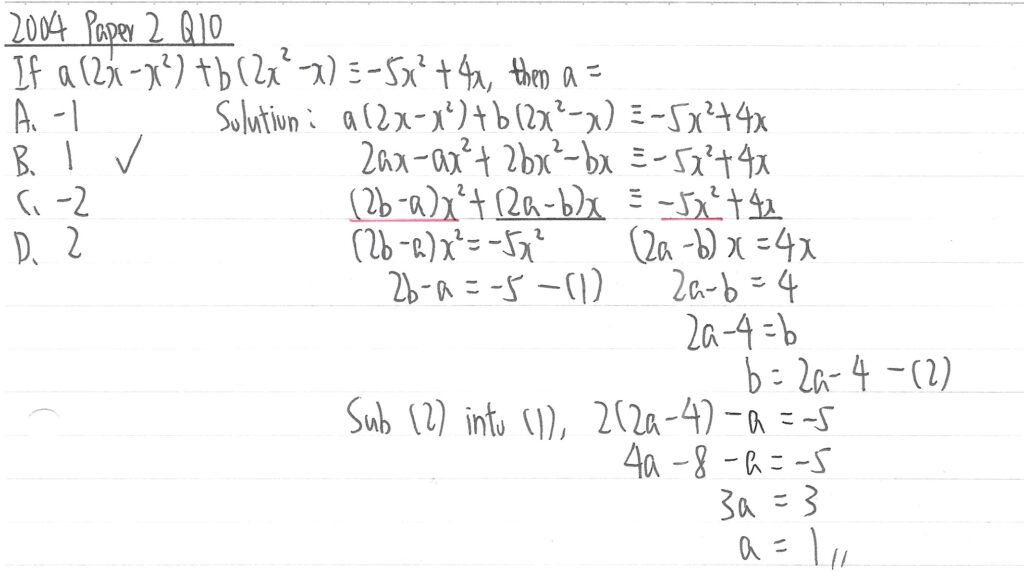 2004 Paper 2 Q10
If a(2x-x²)+b(2x²-x)≡-5x²+4x, then a=
A. -1 Solution: a(2x-x²)+b(2x²-x)≡-5x²+4x
B. 1 ✓ 2ax-ax²+2bx²-bx≡-5x²+4x
C. -2 (2b-a)x²+(2a-b)x≡-5x²+4x
D. 2 (2b-a)x²=-5x² (2a-b)x=4x
2b-a=-5-(1) 2a-b=4
2a-4=b
b=2a-4-(2)
Sub (2) into (1), 2(2a-4)-a=-5
4a-8-a=-5
3a=3
a=1//